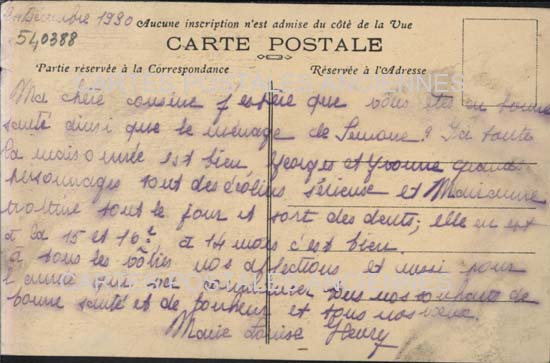 Décembre 1930
540388
Aucune inscription n'est admise du côté de la Vue
CARTE POSTALE
Partie réservée à la Correspondance
Réservée à l'Adresse
CARTES POSTALES ANCIENNES
Ma chère cousine j'espère que vous êtes en bonne
santé ainsi que le ménage de Simone? Ici toute
la maisonnée est bien Georges et Yvonne grands
personnages sont des écoliers sérieuse et Marianne
trottine tout le jour et sort des dents; elle en est
à la 15 et 16e, à 14 mois c'est bien.
à tous les vôtres nos affections et aussi pour
l'année qui va commencer tous nos souhaits de
bonne santé et de bonheur et tous nos vœux.
Marie Louise Fleury